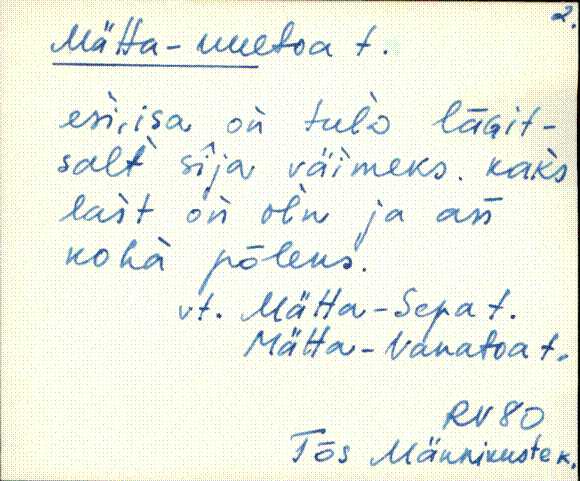 2.
Mätta-uuetoa t.
esi,isa òǹ tulò lägit-
salt̀ sîja väìmeks. kaks
last òǹ olǹ ja
kohà põleus.
vt. Mätta-Sepa t.
Mätta-Vanatoa t.
RV 80
Tõs Männikuste k.